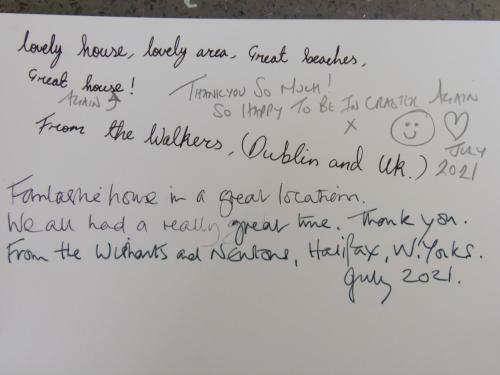 Lovely house, lovely area, Great beaches,
Great house!
AGAIN
THANKYOU SO MUCH!
SO HAPPY TO BE IN CRASTER AGAIN
X
From the Walkers, (Dublin and Uk.)
JULY
2021
Fantastic house in a great location.
We all had a really great time. Thank you.
From the and Newtons, Halifax, W. Yorks.
July 2021.